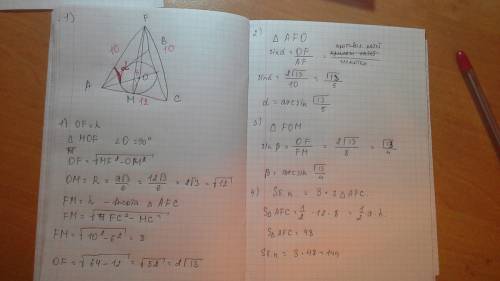 1)
F
10
10
B
α
O
A
M
12
C
1) OF = h
△ MOF ∠O = 90°
OF = √MF² - OM²
OM = R = a√3/6 = 12√3/6 = 2√3 = √12
FM - h - высота △ AFC
FM = √FC² - MC²
FM = √10² - 6² = 8
OF = √64 - 12 = √52 = 2√13
2)
△ AFO
sinα = OF/AF =
sinα = 2√13/10 = √13/5
α = arcsin √13/5
3)
△ FOM
sin β = OF/FM = 2√13/8 = √13/4
β = arcsin √13/4
4) Sб.п. = 3 · S△ AFC
S△ AFC = 1/2 · 12 · 8 = 1/2 a · h
S△ AFC = 48
Sб.п. = 3 · 48 = 144